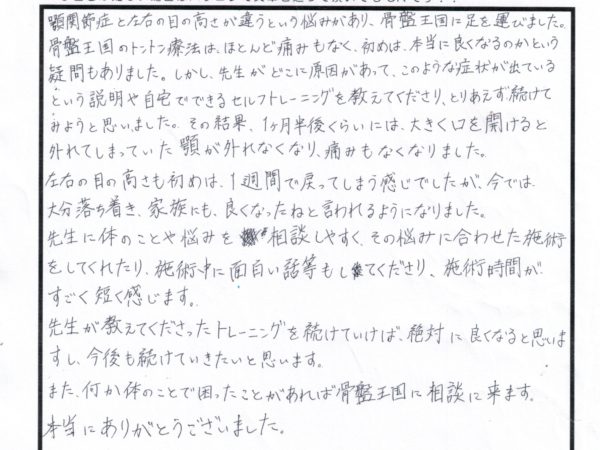 顎関節症と左右の目の高さが違うという悩みがあり、骨盤王国に足を運びました。
骨盤王国のトントン療法は、ほとんど痛みもなく、初めは、本当に良くなるのかという
疑問もありました。しかし、先生がどこに原因があって、このような症状が出ている
という説明や自宅でできるセルフトレーニングを教えてくださり、とりあえず続けて
みようと思いました。その結果、1ヶ月半後くらいには、大きく口を開けると
外れてしまっていた顎が外れなくなり、痛みもなくなりました。
左右の目の高さも初めは、1週間で戻ってしまう感じでしたが、今では、
大分落ち着き、家族にも、良くなったねと言われるようになりました。
先生に体のことや悩みを相談しやすく、その悩みに合わせた施術
をしてくれたり、施術中に面白い話等もしてくださり、施術時間が
すごく短く感じます。
先生が教えてくださったトレーニングを続けていけば、絶対に良くなると思いま
すし、今後も続けていきたいと思います。
また、何か体のことで困ったことがあれば骨盤王国に相談に来ます。
本当にありがとうございました。